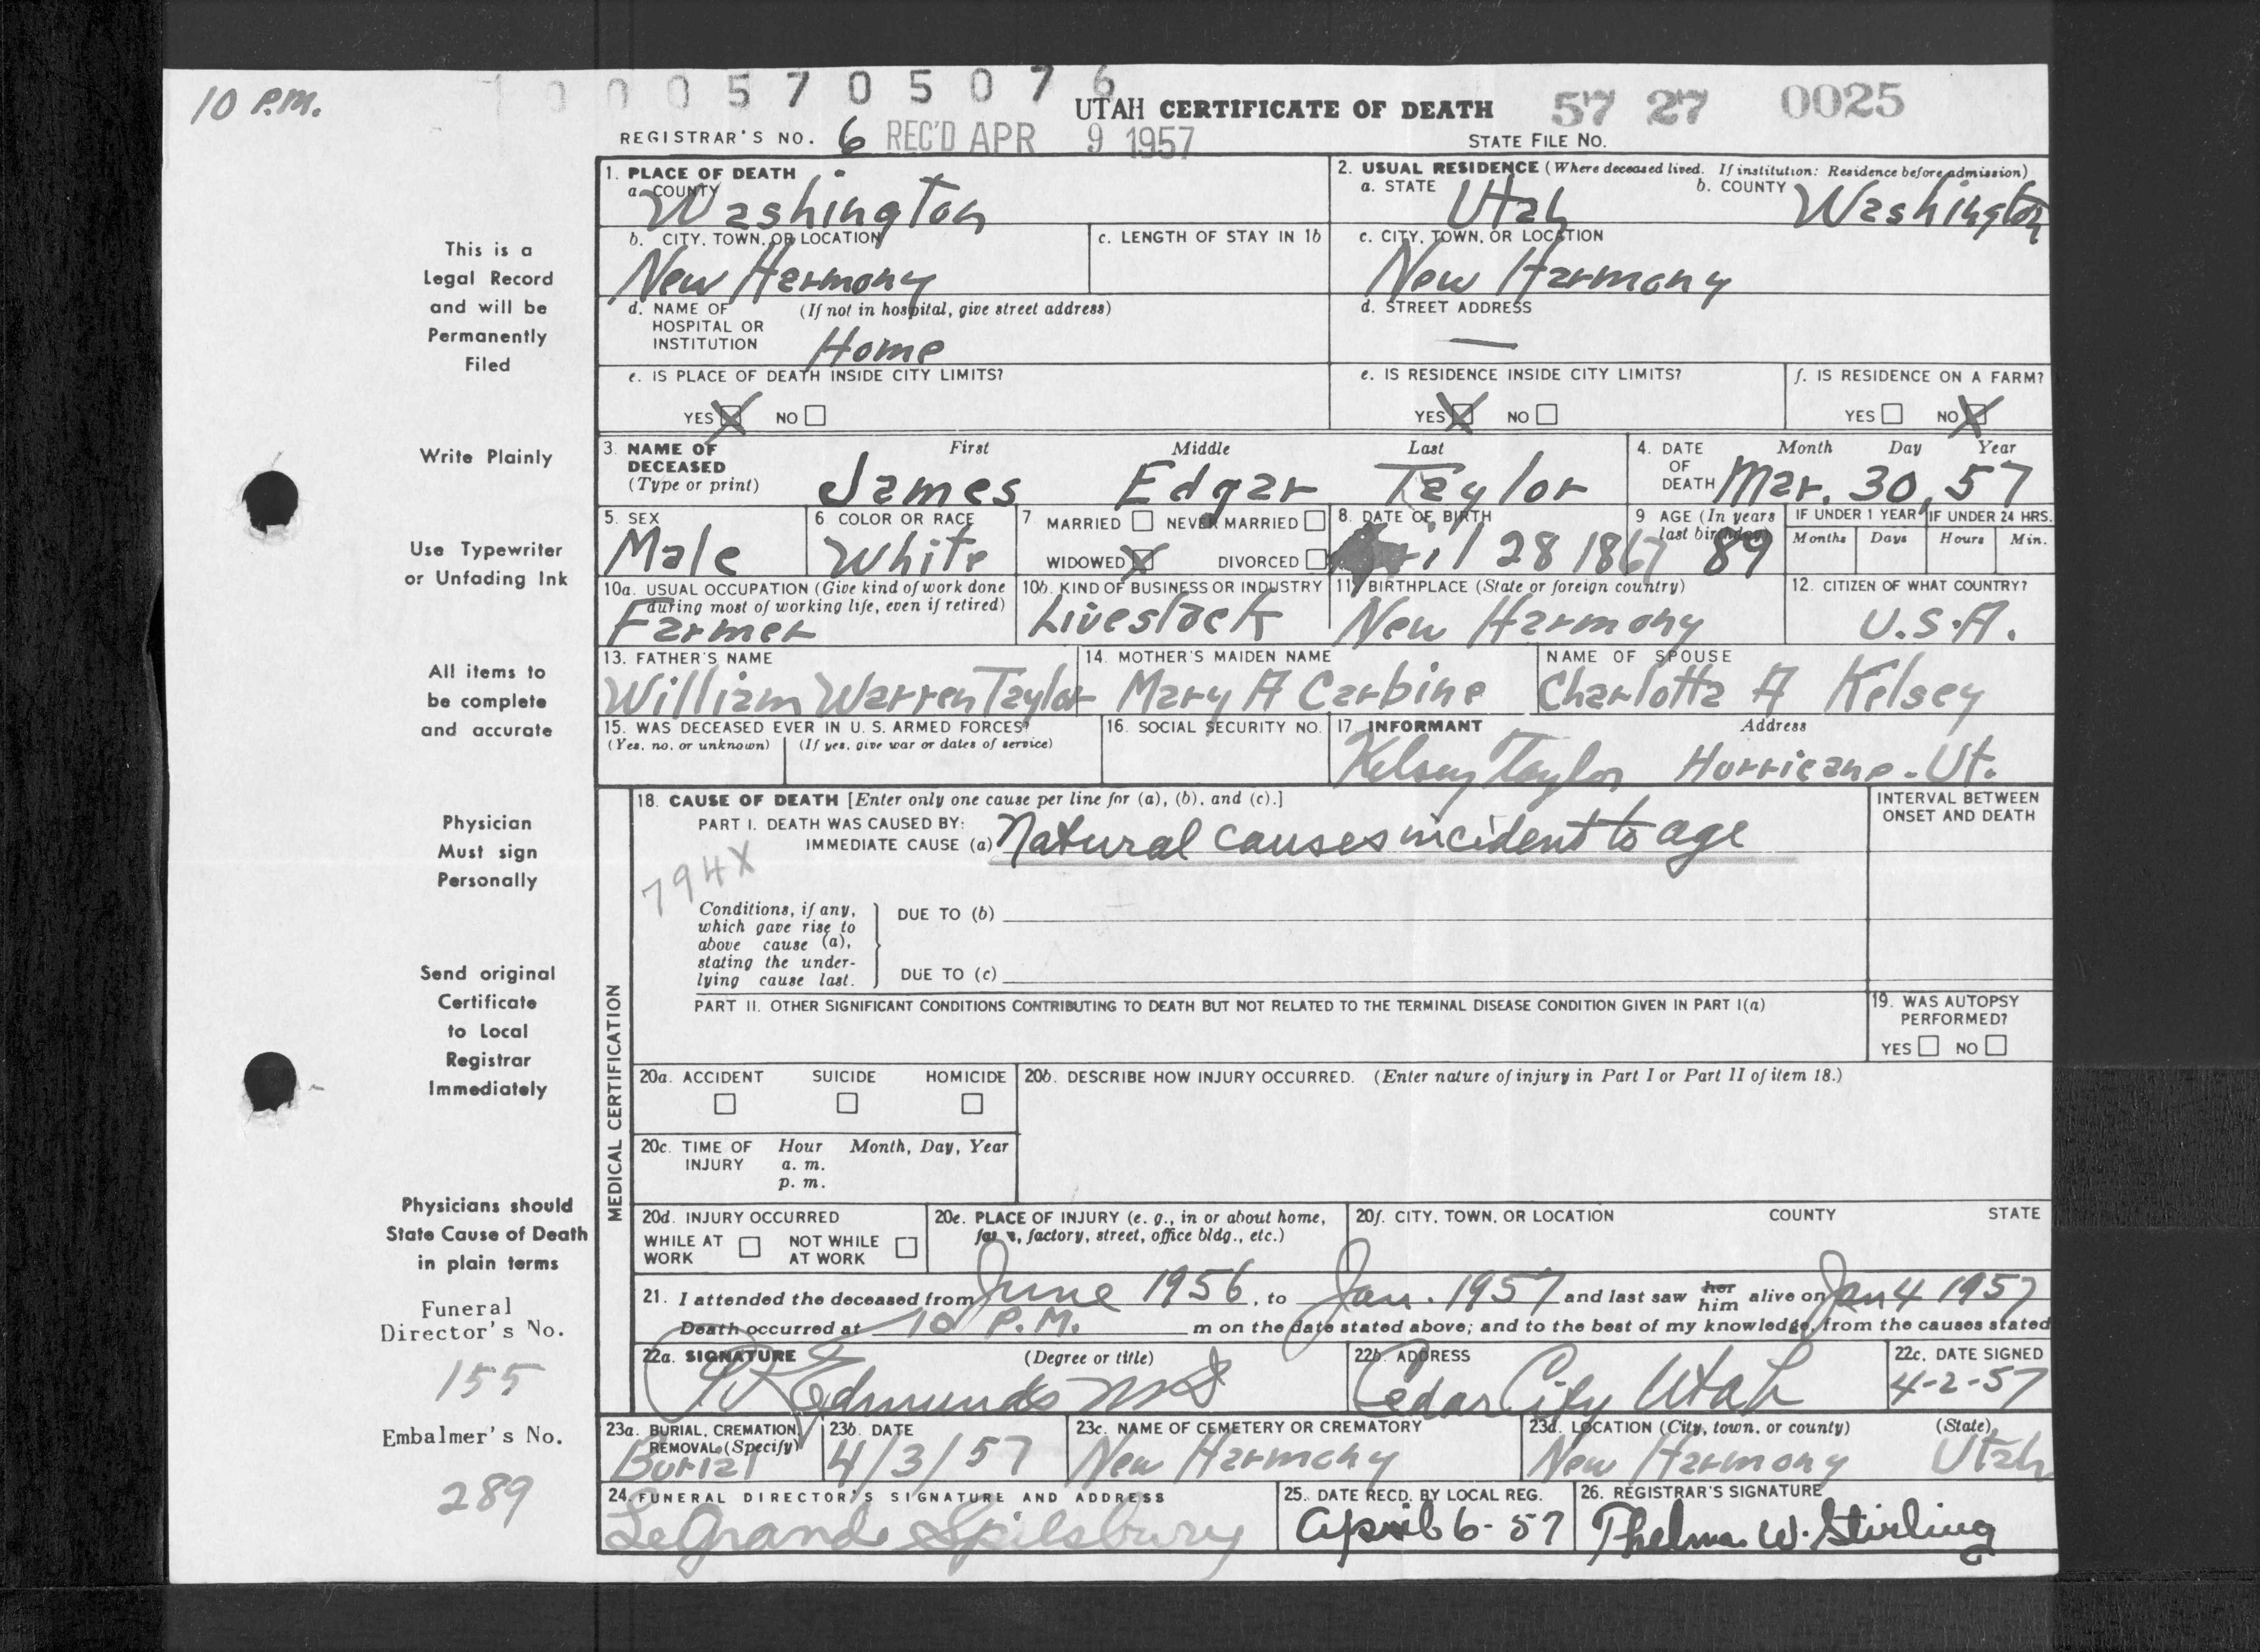 10 P.M.
1 0 0 0 5 7 0 5 0 7 6
UTAH CERTIFICATE OF DEATH 57 27 0025
REGISTRAR'S NO. 6 REC'D APR 9 1957 STATE FILE NO.
1. PLACE OF DEATH
a. COUNTY
Washington
2. USUAL RESIDENCE (Where deceased lived. If institution: Residence before admission)
a. STATE Utah b. COUNTY Washington
b. CITY, TOWN, OR LOCATION
New Harmony
c. LENGTH OF STAY IN 1b
c. CITY, TOWN, OR LOCATION
New Harmony
d. NAME OF (If not in hospital, give street address)
HOSPITAL OR
INSTITUTION Home
d. STREET ADDRESS
—
e. IS PLACE OF DEATH INSIDE CITY LIMITS?
YES NO
e. IS RESIDENCE INSIDE CITY LIMITS?
YES NO
f. IS RESIDENCE ON A FARM?
YES NO
3. NAME OF DECEASED (Type or print)
First Middle Last
James Edgar Taylor
4. DATE OF DEATH
Month Day Year
Mar. 30, 57
5. SEX
Male
6 COLOR OR RACE
White
7. MARRIED NEVER MARRIED
WIDOWED DIVORCED
8. DATE OF BIRTH
April 28 1867
9 AGE (In years last birthday)
89
IF UNDER 1 YEAR
Months Days
IF UNDER 24 HRS.
Hours Min.
10a. USUAL OCCUPATION (Give kind of work done
during most of working life, even if retired)
Farmer
10b. KIND OF BUSINESS OR INDUSTRY
Livestock
11. BIRTHPLACE (State or foreign country)
New Harmony
12. CITIZEN OF WHAT COUNTRY?
U.S.A.
13. FATHER'S NAME
William Warren Taylor
14. MOTHER'S MAIDEN NAME
Mary A Carbine
NAME OF SPOUSE
Charlotta A Kelsey
15. WAS DECEASED EVER IN U. S. ARMED FORCES?
(Yes, no, or unknown) (If yes, give war or dates of service)
16. SOCIAL SECURITY NO.
17. INFORMANT Address
Kelsey Taylor Hurricane. Ut.
18. CAUSE OF DEATH [Enter only one cause per line for (a), (b), and (c).]
PART I. DEATH WAS CAUSED BY:
IMMEDIATE CAUSE (a) Natural causes incident to age
INTERVAL BETWEEN
ONSET AND DEATH
794X
Conditions, if any,
which gave rise to
above cause (a),
stating the under-
lying cause last.
DUE TO (b)
DUE TO (c)
PART II. OTHER SIGNIFICANT CONDITIONS CONTRIBUTING TO DEATH BUT NOT RELATED TO THE TERMINAL DISEASE CONDITION GIVEN IN PART I(a)
19. WAS AUTOPSY
PERFORMED?
YES NO
MEDICAL CERTIFICATION
20a. ACCIDENT SUICIDE HOMICIDE
20b. DESCRIBE HOW INJURY OCCURRED. (Enter nature of injury in Part I or Part II of item 18.)
20c. TIME OF INJURY
Hour Month, Day, Year
a. m.
p. m.
20d. INJURY OCCURRED
WHILE AT WORK NOT WHILE AT WORK
20e. PLACE OF INJURY (e. g., in or about home,
farm, factory, street, office bldg., etc.)
20f. CITY, TOWN, OR LOCATION COUNTY STATE
21. I attended the deceased from June 1956, to Jan. 1957 and last saw her him alive on Jan 4 1957
Death occurred at 10 P.M. m on the date stated above; and to the best of my knowledge, from the causes stated
22a. SIGNATURE (Degree or title)
Edmunds MD
22b. ADDRESS
Cedar City Utah
22c. DATE SIGNED
4-2-57
23a. BURIAL, CREMATION,
REMOVAL (Specify)
Burial
23b. DATE
4/3/57
23c. NAME OF CEMETERY OR CREMATORY
New Harmony
23d. LOCATION (City, town, or county) (State)
New Harmony Utah
24. FUNERAL DIRECTOR'S SIGNATURE AND ADDRESS
LeGrande Spilsbury
25. DATE RECD. BY LOCAL REG.
April 6-57
26. REGISTRAR'S SIGNATURE
Thelma W. Stirling
This is a
Legal Record
and will be
Permanently
Filed
Write Plainly
Use Typewriter
or Unfading Ink
All items to
be complete
and accurate
Physician
Must sign
Personally
Send original
Certificate
to Local
Registrar
Immediately
Physicians should
State Cause of Death
in plain terms
Funeral
Director's No.
155
Embalmer's No.
289